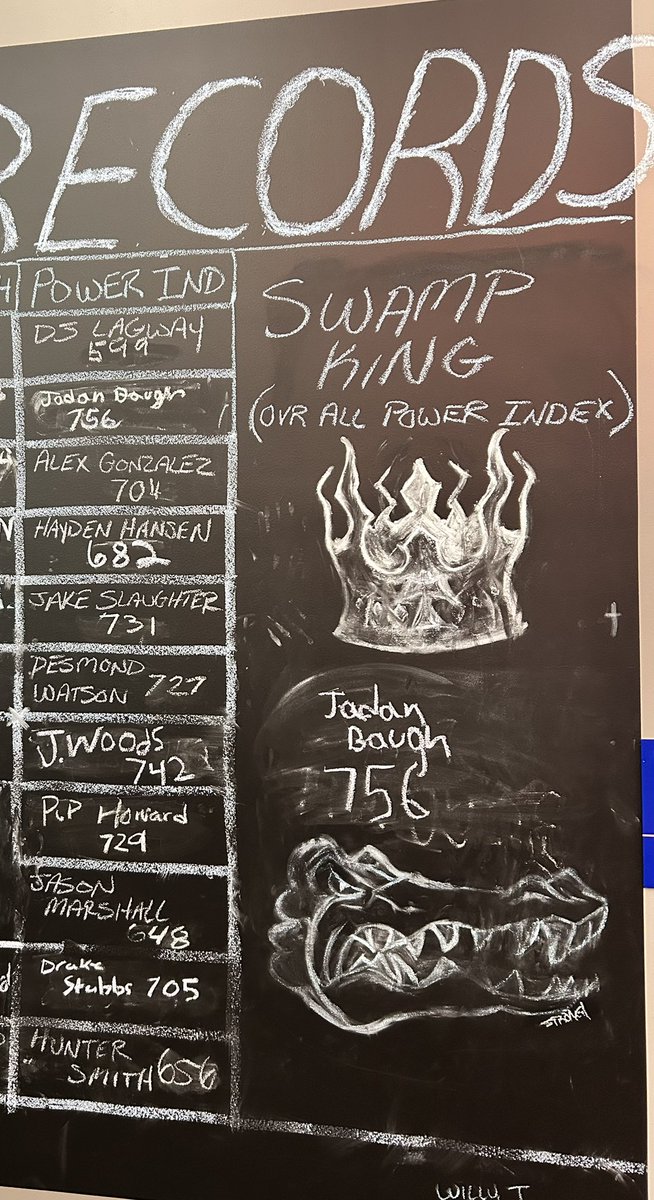 RECORDS
POWER IND
DJ LAGWAY
599
Jadan Baugh
756
ALEX GONZALEZ
704
HAYDEN HANSEN
682
JAKE SLAUGHTER
731
DESMOND
WATSON 727
J.WOODS
742
PUP Howard
729
JASON
MARSHALL
648
Drake
Stubbs 705
HUNTER
SMITH 656
SWAMP
KING
(OVR ALL POWER INDEX)
Jadan
Baugh
756
WILLY T